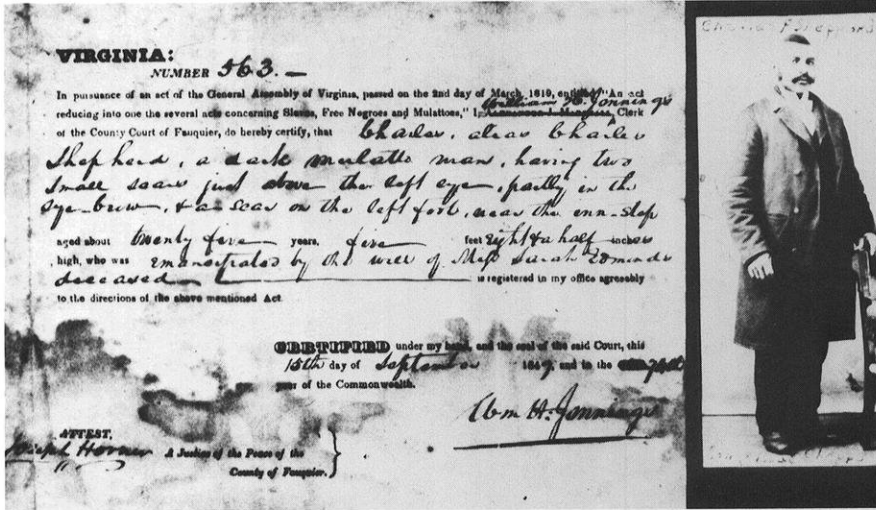 VIRGINIA:
NUMBER 563.
In pursuance of an act of the General Assembly of Virginia, passed on the 2nd day of March, 1819, entitled "An act
reducing into one the several acts concerning Slaves, Free Negroes and Mulattoes," I, William H. Jennings, Clerk
of the County Court of Fauquier, do hereby certify, that Charles, alias Charles
Shepherd, a dark mulatto man, having two
small scars just above the left eye, partly in the
eye-brow, & a scar on the left foot, near the inn-step
aged about twenty five years, five feet eight & a half inches
high, who was emancipated by the will of Miss Sarah Edmonds
deceased is registered in my office agreeably
to the directions of the above mentioned Act.
CERTIFIED under my hand, and the seal of the said Court, this
15th day of September 1849, and in the 74th
year of the Commonwealth.
Wm H. Jennings
ATTEST,
Joseph Horner A Justice of the Peace of the
County of Fauquier.